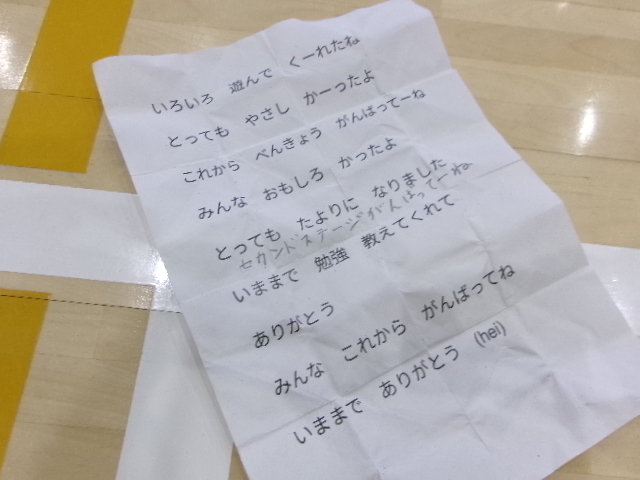 いろいろ 遊んで くーれたね
とっても やさし かーったよ
これから べんきょう がんばってーね
みんな おもしろ かったよ
とっても たよりに なりました
セカンドステージがんばってーね
いままで 勉強 教えてくれて
ありがとう
みんな これから がんばってね
いままで ありがとう (hei)